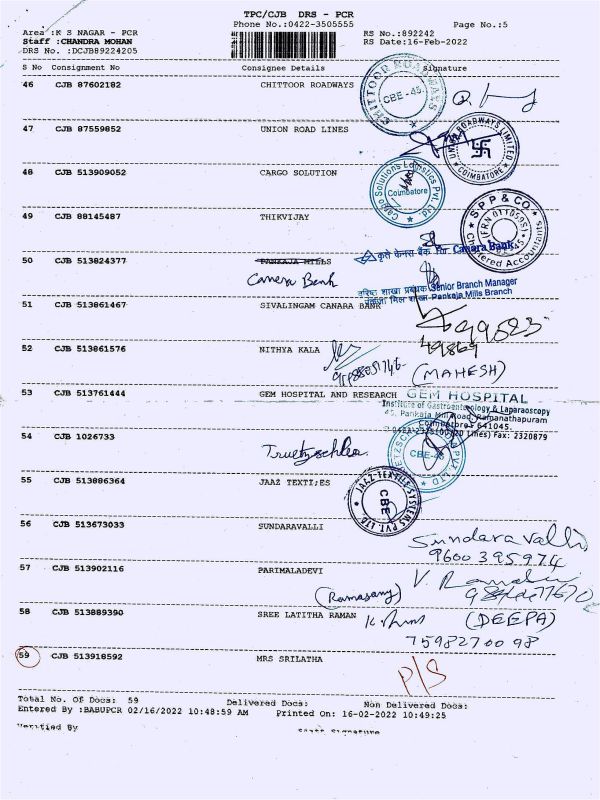 TPC/CJB DRS - PCR
Phone No.:0422-3505555 Page No.:5
Area :K S NAGAR - PCR RS No.:892242
Staff :CHANDRA MOHAN RS Date:16-Feb-2022
DRS No. :DCJB89224205
S No Consignment No Consignee Details Signature
46 CJB 87602182 CHITTOOR ROADWAYS
CHITTOOR ROADWAYS
CBE-45
47 CJB 87559852 UNION ROAD LINES
UNION ROADWAYS LIMITED
COIMBATORE
48 CJB 513909052 CARGO SOLUTION
Cargo Solutions Logistics Pvt. Ltd
Coimbatore
49 CJB 88145487 THIKVIJAY
SPP & CO
Chartered Accountants
50 CJB 513824377 PANKAJA MILLS
Canara Bank
कृते केनरा बैंक For Canara Bank
वरिष्ठ शाखा प्रबंधक Senior Branch Manager
Pankaja Mills Branch
51 CJB 513861467 SIVALINGAM CANARA BANK
49869
52 CJB 513861576 NITHYA KALA
(MAHESH)
53 CJB 513761444 GEM HOSPITAL AND RESEARCH
GEM HOSPITAL
Institute of Gastroenterology & Laparaoscopy
45, Pankaja Mill Road, Ramanathapuram
Coimbatore - 641045.
Lines) Fax: 2320879
54 CJB 1026733
Truetzschler
CBE-45
55 CJB 513886364 JAAZ TEXTI;ES
JAAZ TEXTILE SYSTEMS PVT. LTD.
CBE
56 CJB 513673033 SUNDARAVALLI
Sundaravalli
9600395974
57 CJB 513902116 PARIMALADEVI
(Ramasamy)
58 CJB 513889390 SREE LATITHA RAMAN
(DEEPA)
7598270098
59 CJB 513918592 MRS SRILATHA
P/S
Total No. Of Docs: 59 Delivered Docs: Non Delivered Docs:
Entered By :BABUPCR 02/16/2022 10:48:59 AM Printed On: 16-02-2022 10:49:25
Verified By Staff Signature